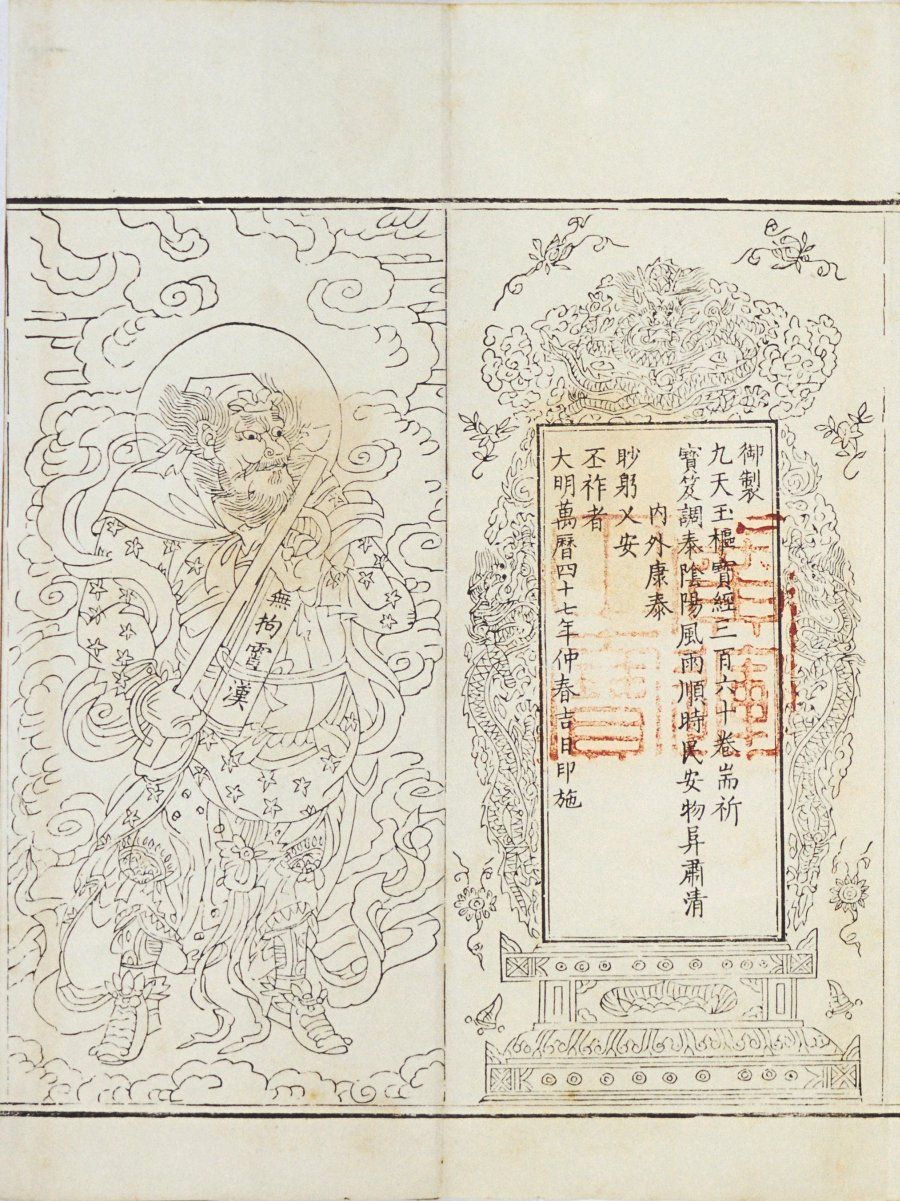 御製
九天玉樞寶經三百六十卷耑祈
寶笈調泰陰陽風雨順時民安物阜肅清
内外康泰
眇躬乂安
丕祚者
大明萬曆四十七年仲春吉日印施
無拘霄漢